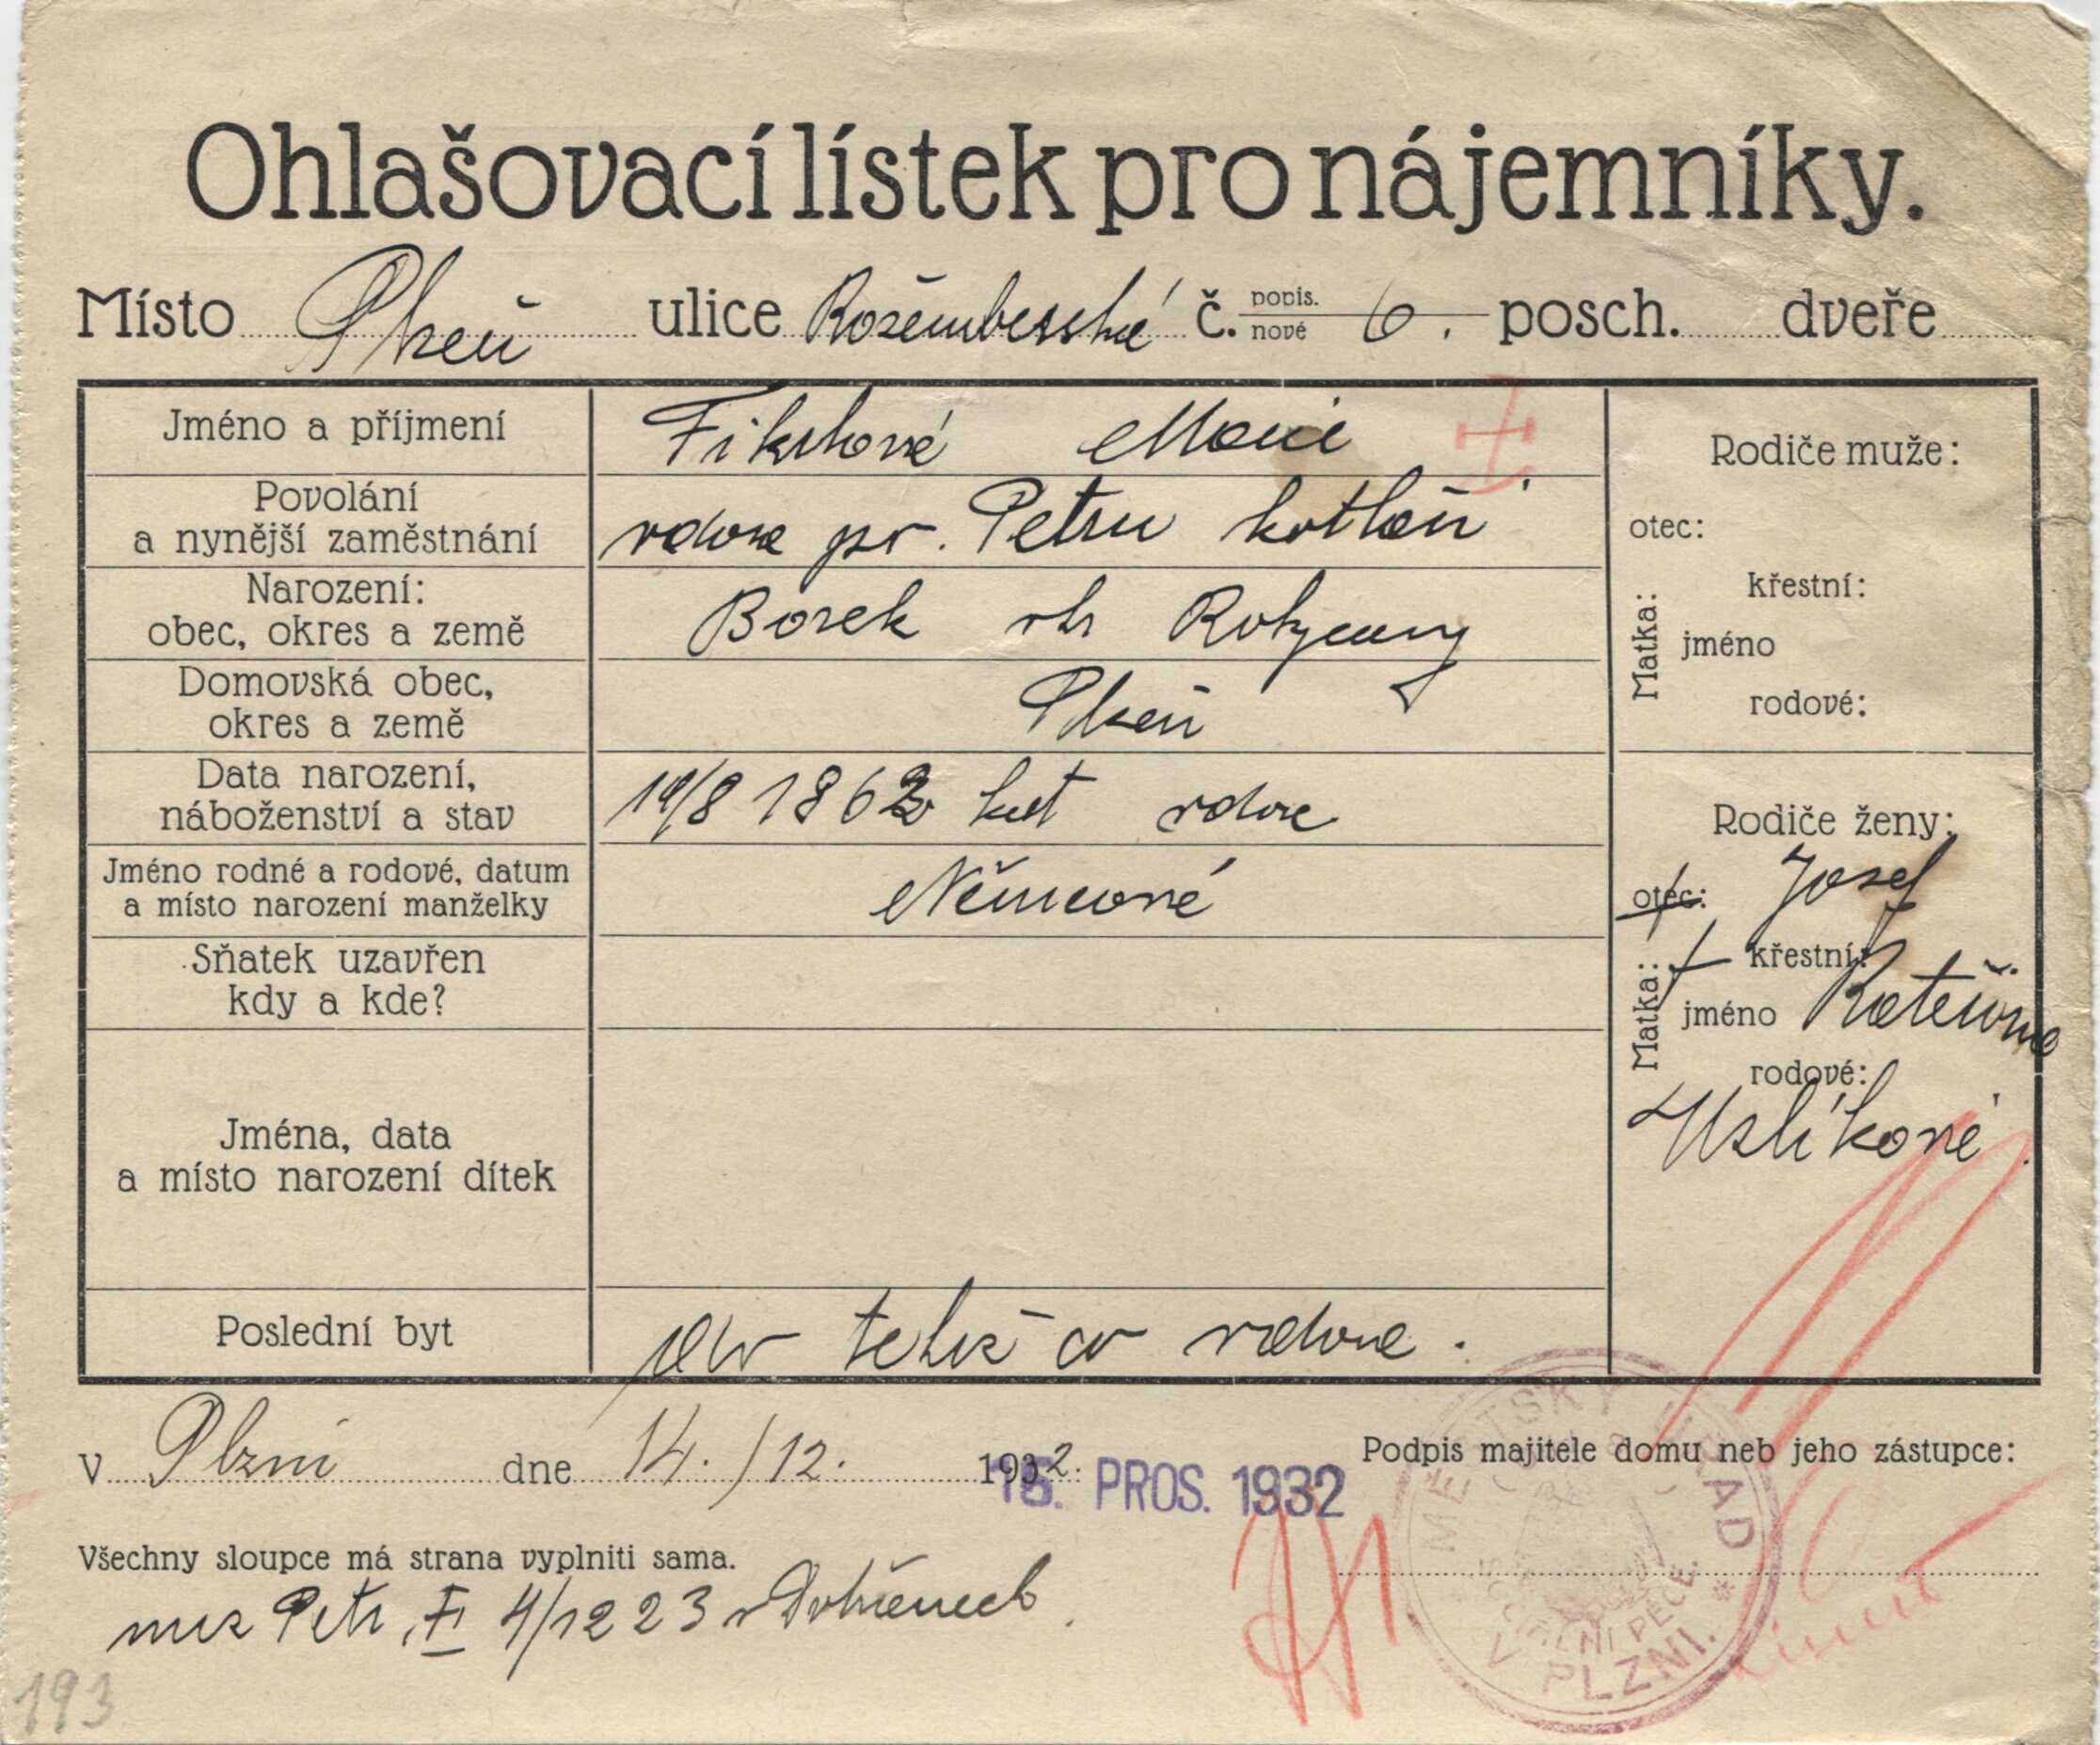 Ohlašovací lístek pro nájemníky.
Místo Plzeň ulice č. popis. nové 6. posch. dveře
Jméno a příjmení
Marie
Povolání
a nynější zaměstnání
vdova po Petru
Narození:
obec, okres a země
Borek Rokycany
Domovská obec,
okres a země
Plzeň
Data narození,
náboženství a stav
1862 vdova
Jméno rodné a rodové, datum
a místo narození manželky
Němcová
Sňatek uzavřen
kdy a kde?
Jména, data
a místo narození dítek
Poslední byt
co vdova.
Rodiče muže:
otec:
Matka:
křestní:
jméno
rodové:
Rodiče ženy:
otec: Josef
Matka:
křestní:
jméno Kateřina
rodové:
V Plzni dne 14./12. 1932.
16. PROS. 1932
Podpis majitele domu neb jeho zástupce:
Všechny sloupce má strana vyplniti sama.
Petr 4/12 23 v
MĚSTSKÝ ÚŘAD
SOCIÁLNÍ PÉČE
V PLZNI.
193